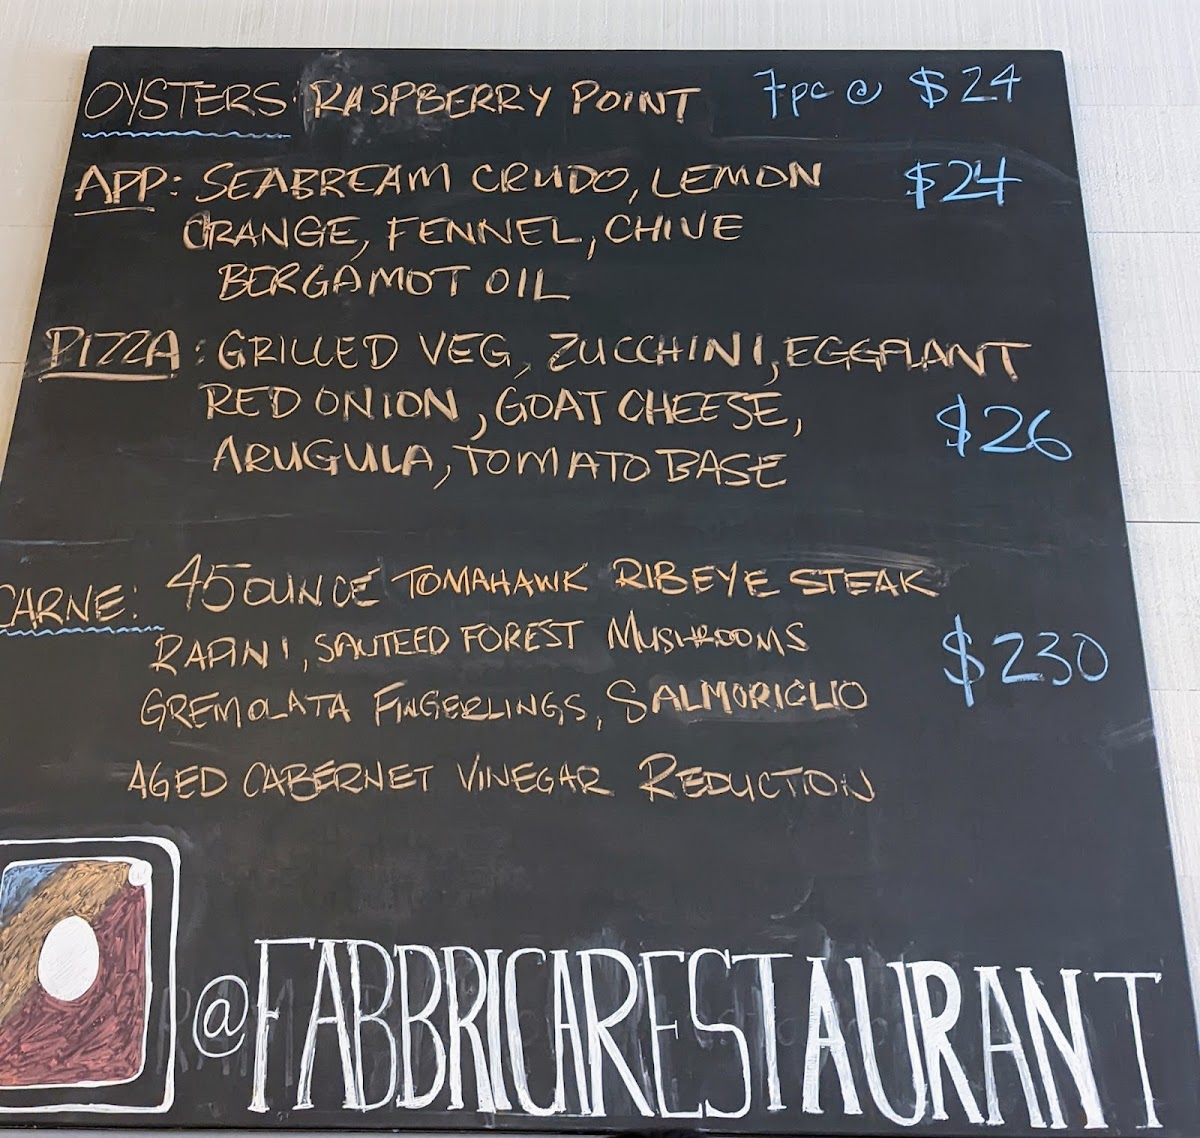 OYSTERS: RASPBERRY POINT 7pc @ $24
APP: SEABREAM CRUDO, LEMON $24
ORANGE, FENNEL, CHIVE
BERGAMOT OIL
PIZZA: GRILLED VEG, ZUCCHINI, EGGPLANT
RED ONION, GOAT CHEESE, $26
ARUGULA, TOMATO BASE
CARNE: 45 OUNCE TOMAHAWK RIBEYE STEAK
RAPINI, SAUTEED FOREST MUSHROOMS $230
GREMOLATA FINGERLINGS, SALMORIGLIO
AGED CABERNET VINEGAR REDUCTION
@FABBRICARESTAURANT